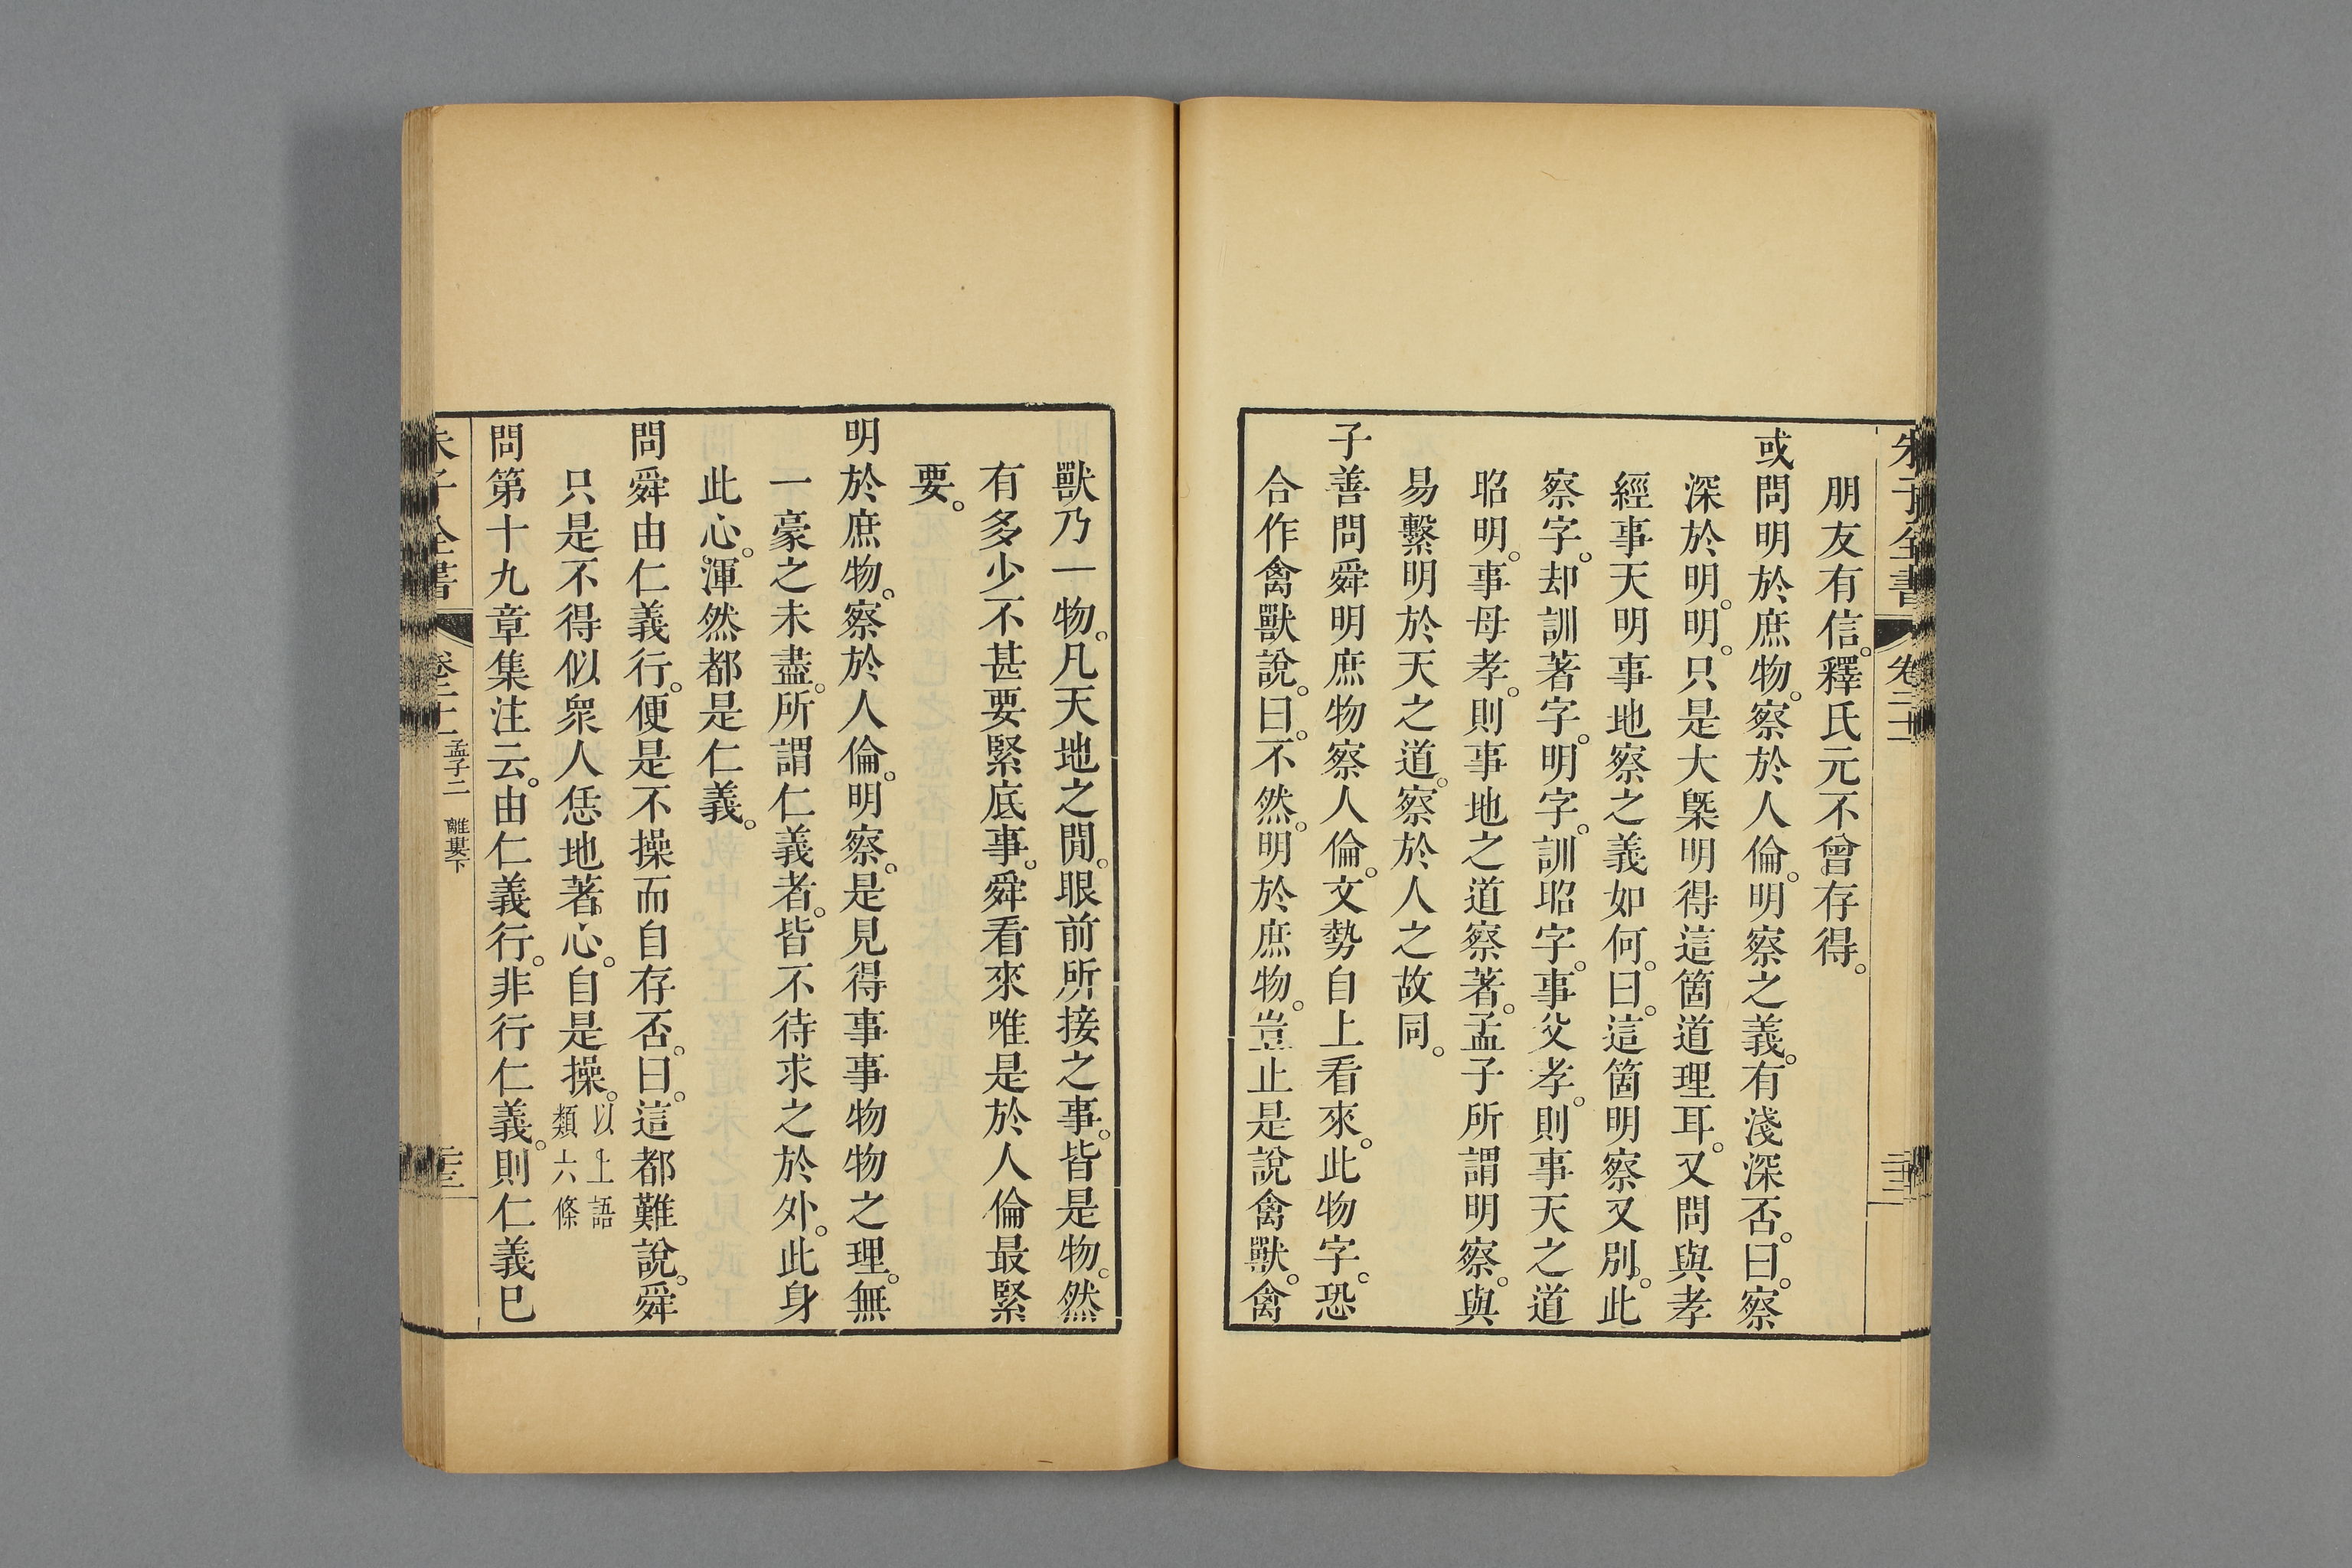 朋友有信。釋氏元不曾存得。
或問明於庶物。察於人倫。明察之義。有淺深否。曰。察
深於明。明。只是大槩明得這箇道理耳。又問與孝
經事天明事地察之義如何。曰。這箇明察又別。此
察字。却訓著字。明字。訓昭字。事父孝。則事天之道
昭明。事母孝。則事地之道察著。孟子所謂明察。與
易繫明於天之道。察於人之故同。
子善問舜明庶物察人倫。文勢自上看來。此物字。恐
合作禽獸說。曰。不然。明於庶物。豈止是說禽獸。禽
獸乃一物。凡天地之閒。眼前所接之事。皆是物。然
有多少不甚要緊底事。舜看來唯是於人倫最緊
要。
明於庶物。察於人倫。明察。是見得事事物物之理。無
一豪之未盡。所謂仁義者。皆不待求之於外。此身
此心。渾然都是仁義。
問舜由仁義行。便是不操而自存否。曰。這都難說。舜
只是不得似衆人恁地著心。自是操。以上語類六條
問第十九章集注云。由仁義行。非行仁義。則仁義已
朱子全書 卷二十一 孟子二 離婁下